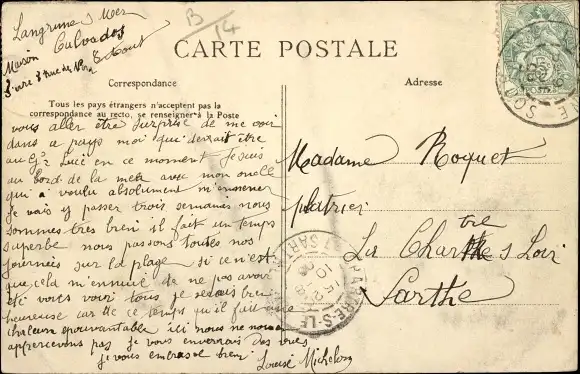 Langrune s Mer
Calvados
Maison
B/14
CARTE POSTALE
Correspondance
Adresse
Tous les pays étrangers n'acceptent pas la
correspondance au recto, se renseigner à la Poste
vous aller être surprise de me voir
dans ce pays moi qui devrait être
au Gd Lucé en ce moment Je suis
au bord de la mer avec mon oncle
qui a voulu absolument m'emmener
je vais y passer trois semaines nous
sommes très bien il fait un temps
superbe nous passons toutes nos
journées sur la plage si ce n'est
que cela m'ennuie de ne pas avoir
été vous voir tous je serais bien
heureuse car ce temps qu'il fait une
chaleur épouvantable ici nous ne nous
appercevons pas je vous enverrais des vues
je vous embrasse bien
Louise
Madame Roquet
platrier
La Chartre s Loir
Sarthe